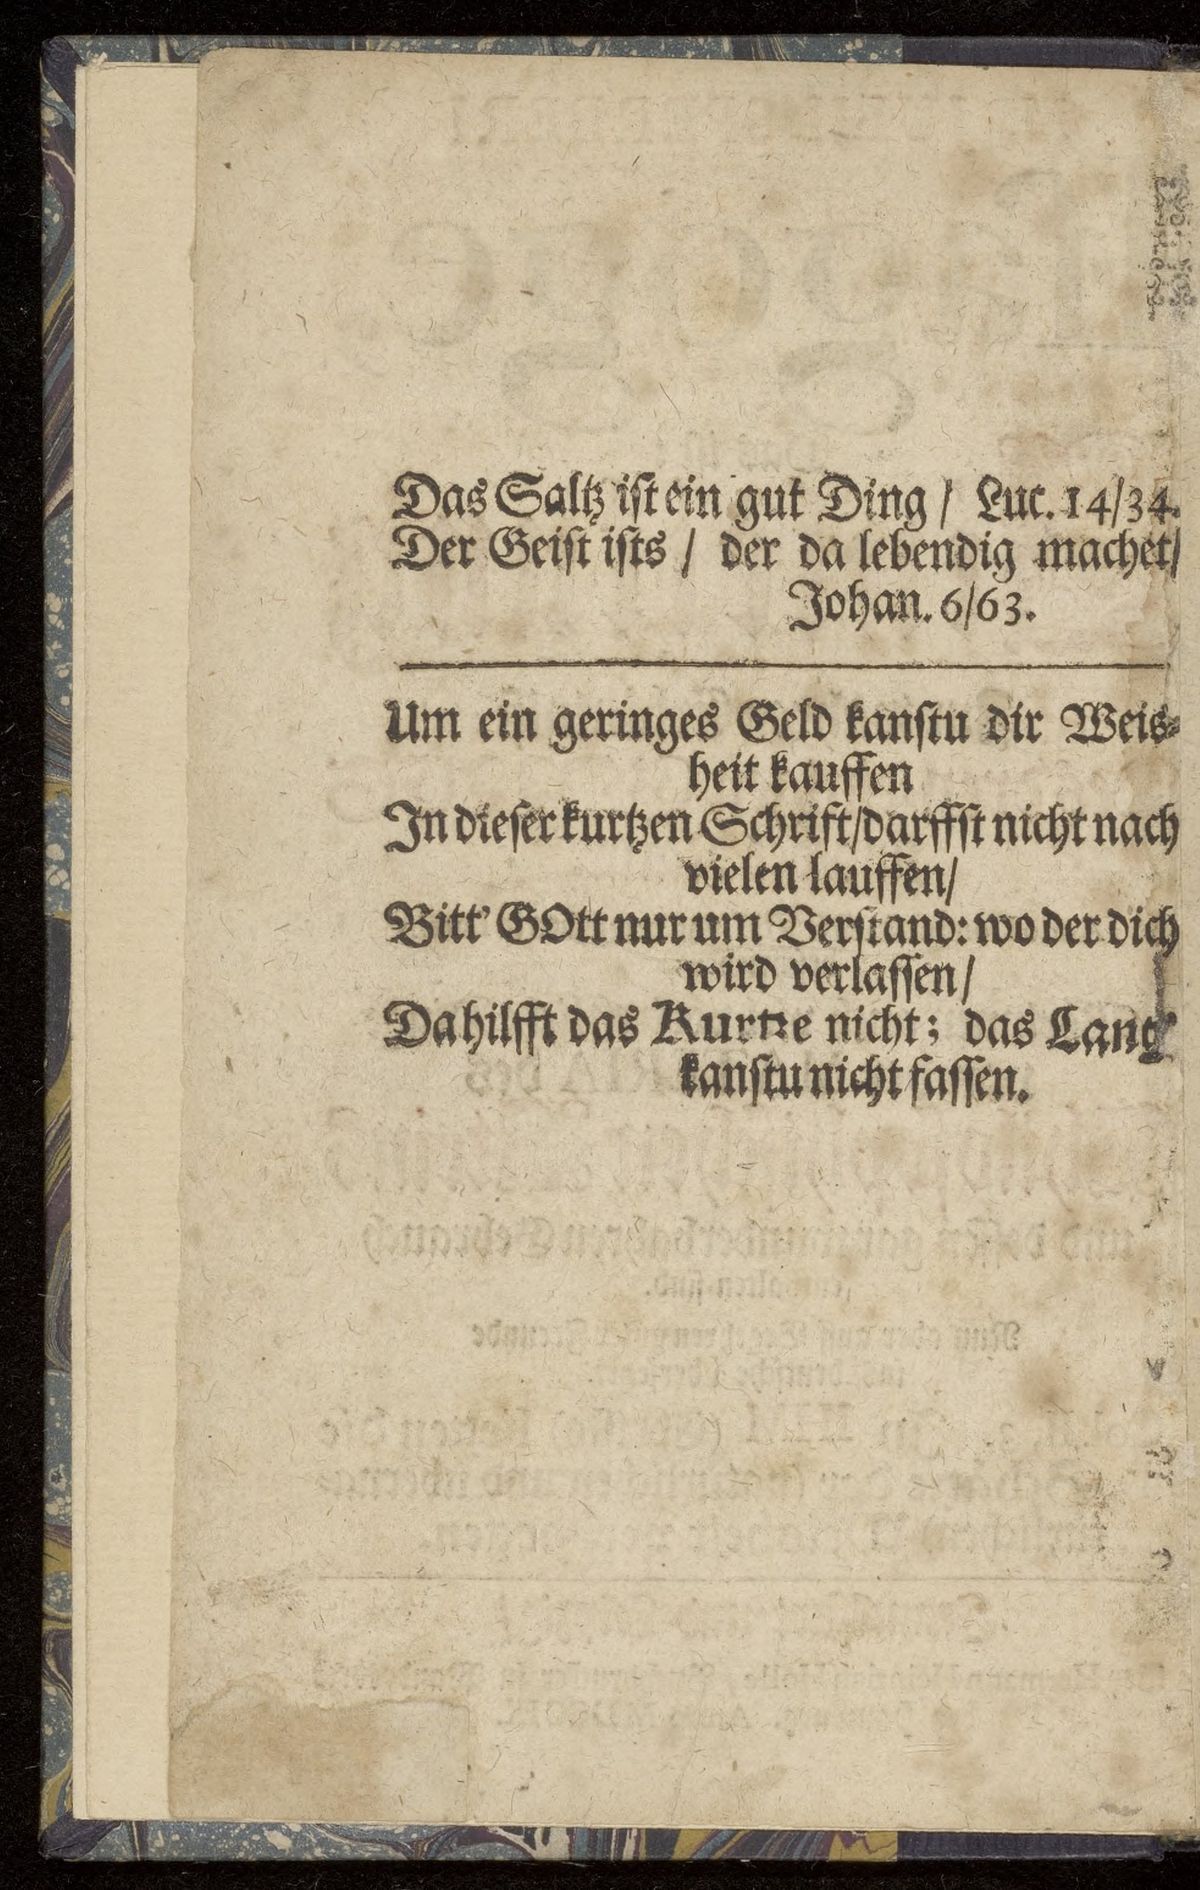 Das Saltz iſt ein gut Ding / Luc. 14/34.
Der Geiſt iſts / der da lebendig machet/
Johan. 6/63.
Um ein geringes Geld kanſtu dir Weis⸗
heit kauffen
In dieſer kurtzen Schrift/darffſt nicht nach
vielen lauffen/
Bitt' GOtt nur um Verſtand: wo der dich
wird verlaſſen/
Da hilfft das Kurtze nicht; das Lang'
kanſtu nicht faſſen.